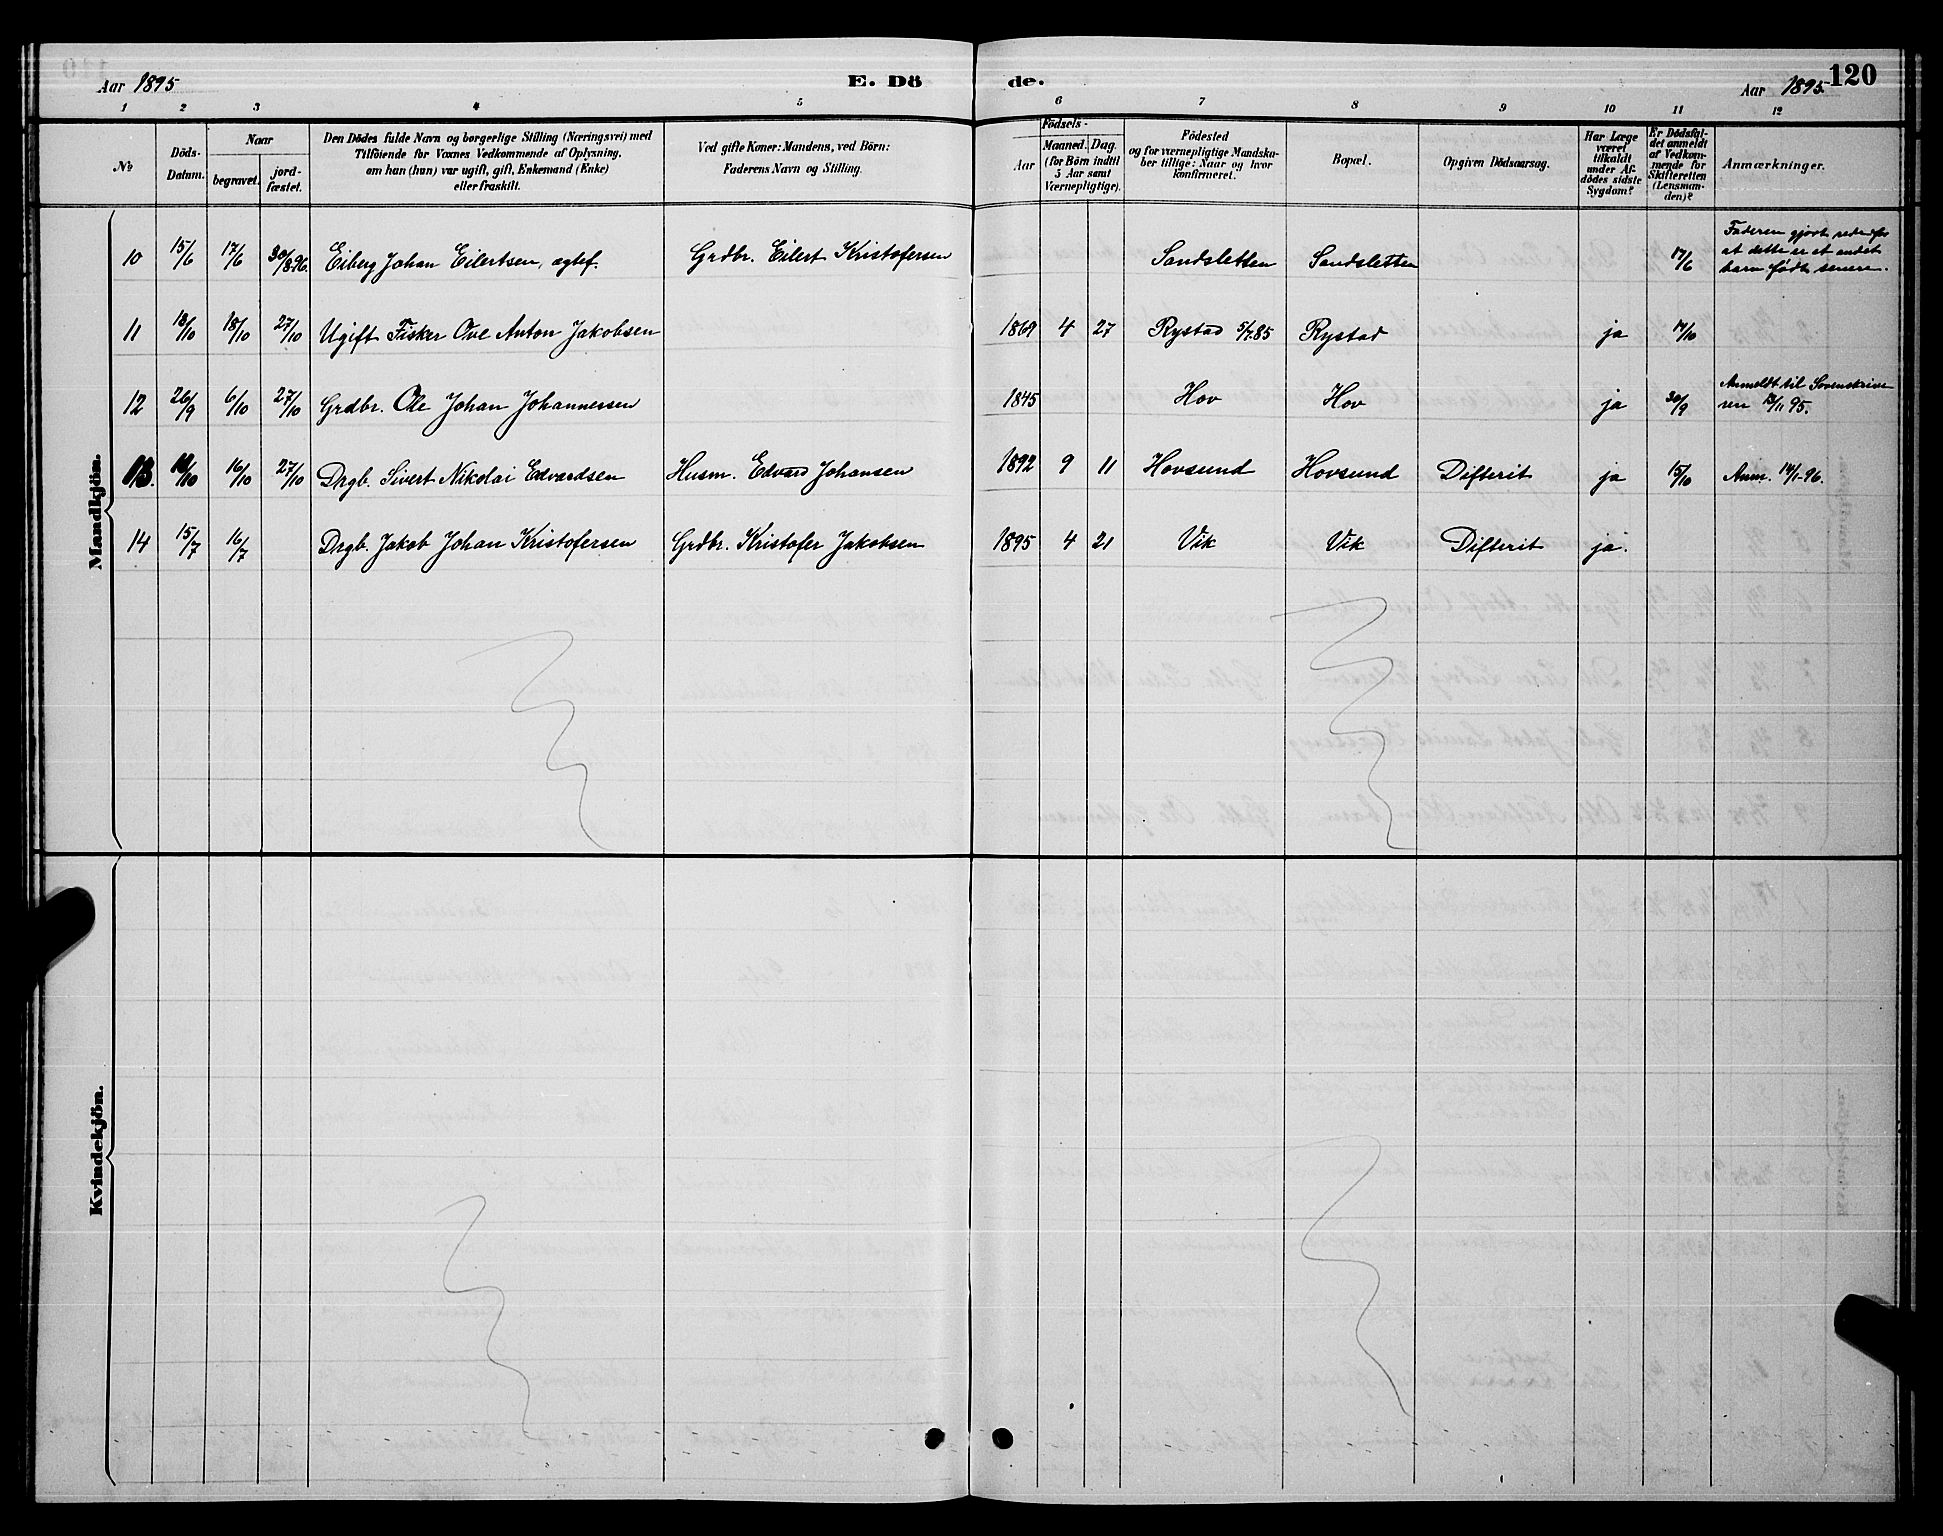 Aar 1895 E. Dö de. Aar 1895 120
1 2 3 4 5 6 7 8 9 10 11 12
№
Döds-
Datum.
Naar
begravet.
jord-
fæstet.
Den Dödes fulde Navn og borgerlige Stilling (Næringsvei) med
Tilföiende for Voxnes Vedkommende af Oplysning,
om han (hun) var ugift, gift, Enkemand (Enke)
eller fraskilt.
Ved gifte Koner: Mandens, ved Börn:
Faderens Navn og Stilling.
Födsels-
Aar
Maaned. Dag.
(for Börn indtil
5 Aar samt
Værnepligtige).
Födested
og for værnepligtige Mandska-
ber tillige: Naar og hvor
konfirmeret.
Bopæl.
Opgiven Dödsaarsag.
Har Læge
været
tilkaldt
under Af-
dödes sidste
Sygdom?
Er Dödsfal-
det anmeldt
af Vedkom-
mende for
Skifteretten
(Lensman-
den)?
Anmærkninger.
Mandkjön.
10 15/6 17/6 30/8 96. Eiberg Johan Eilertsen, agtef. Grdbr. Eilert Kristofersen Sandsletten Sandsletten 17/6 Faderen gjort rede for
at dette er et andet
barn født senere.
11 13/10 18/10 27/10 Ugift Fisker Ove Anton Jakobsen 1869 4 27 Rystad 5/7.85 Rystad ja 14/10
12 26/9 6/10 27/10 Grdbr. Ole Johan Johannessen 1845 Hov Hov ja 30/9 Anmeldt til Sorenskrive
ren 13/11 95.
13. 16/10 27/10 Drgb. Sivert Nikolai Edvardsen Husm. Edvard Johansen 1892 9 11 Hovsund Hovsund Difterit ja 15/10 Anm. 14/1-96.
14 15/7 16/7 Drgb. Jakob Johan Kristofersen Grdbr. Kristofer Jakobsen 1895 4 21 Vik Vik Difterit ja.
Kvindekjön.